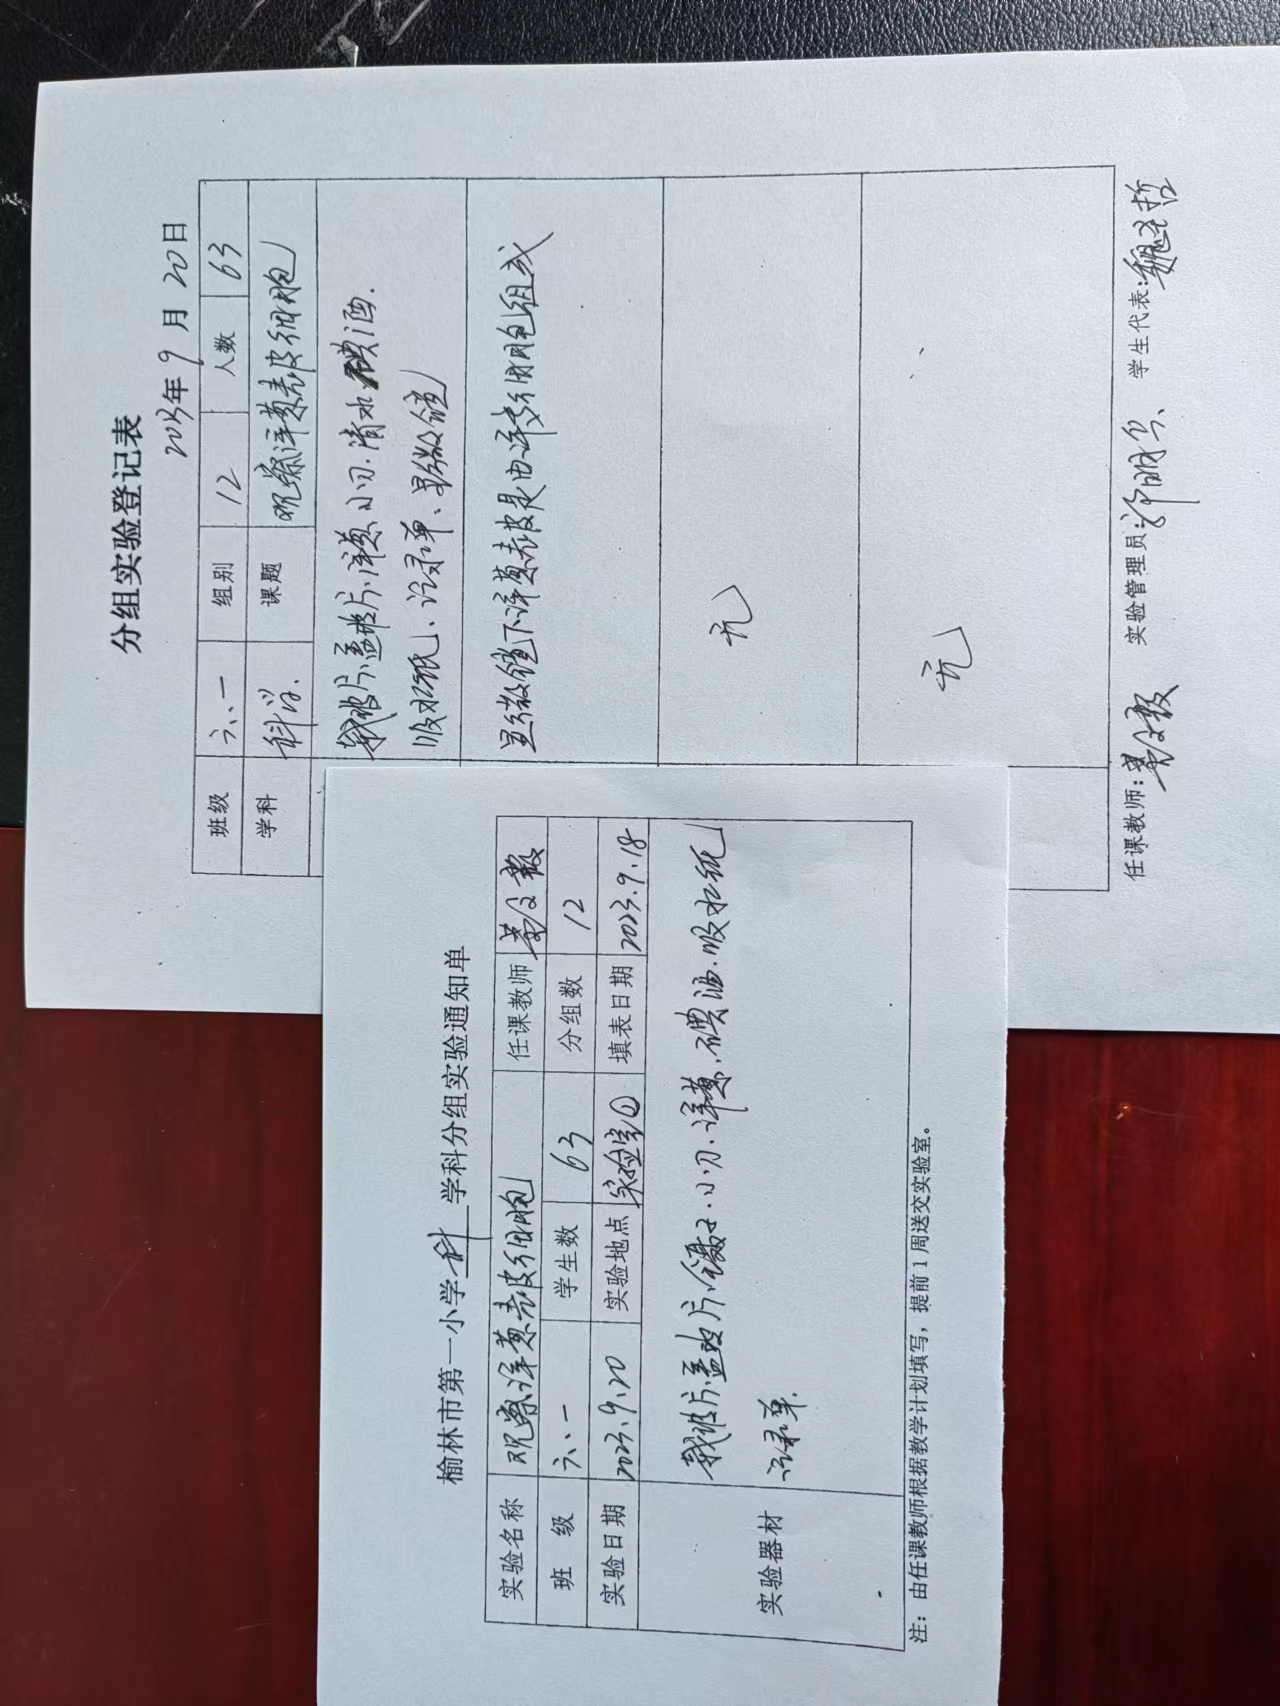 分组实验登记表
2023年 9 月 20 日
班级 六、一 组别 12 人数 63
学科 科学. 课题 观察洋葱表皮细胞
载玻片.盖玻片.洋葱.小刀.清水.碘酒.
吸水纸、记录单、显微镜
显微镜下洋葱表皮是由许多细胞组成
无
无
任课教师: 实验管理员: 学生代表:
榆林市第一小学 科 学科分组实验通知单
实验名称 观察洋葱表皮细胞 任课教师
班 级 六、一 学生数 63 分组数 12
实验日期 2023.9.20 实验地点 实验室① 填表日期 2023.9.18
实验器材
载玻片.盖玻片.镊子.小刀.洋葱.碘酒.吸水纸
记录单.
注: 由任课教师根据教学计划填写，提前 1 周送交实验室。